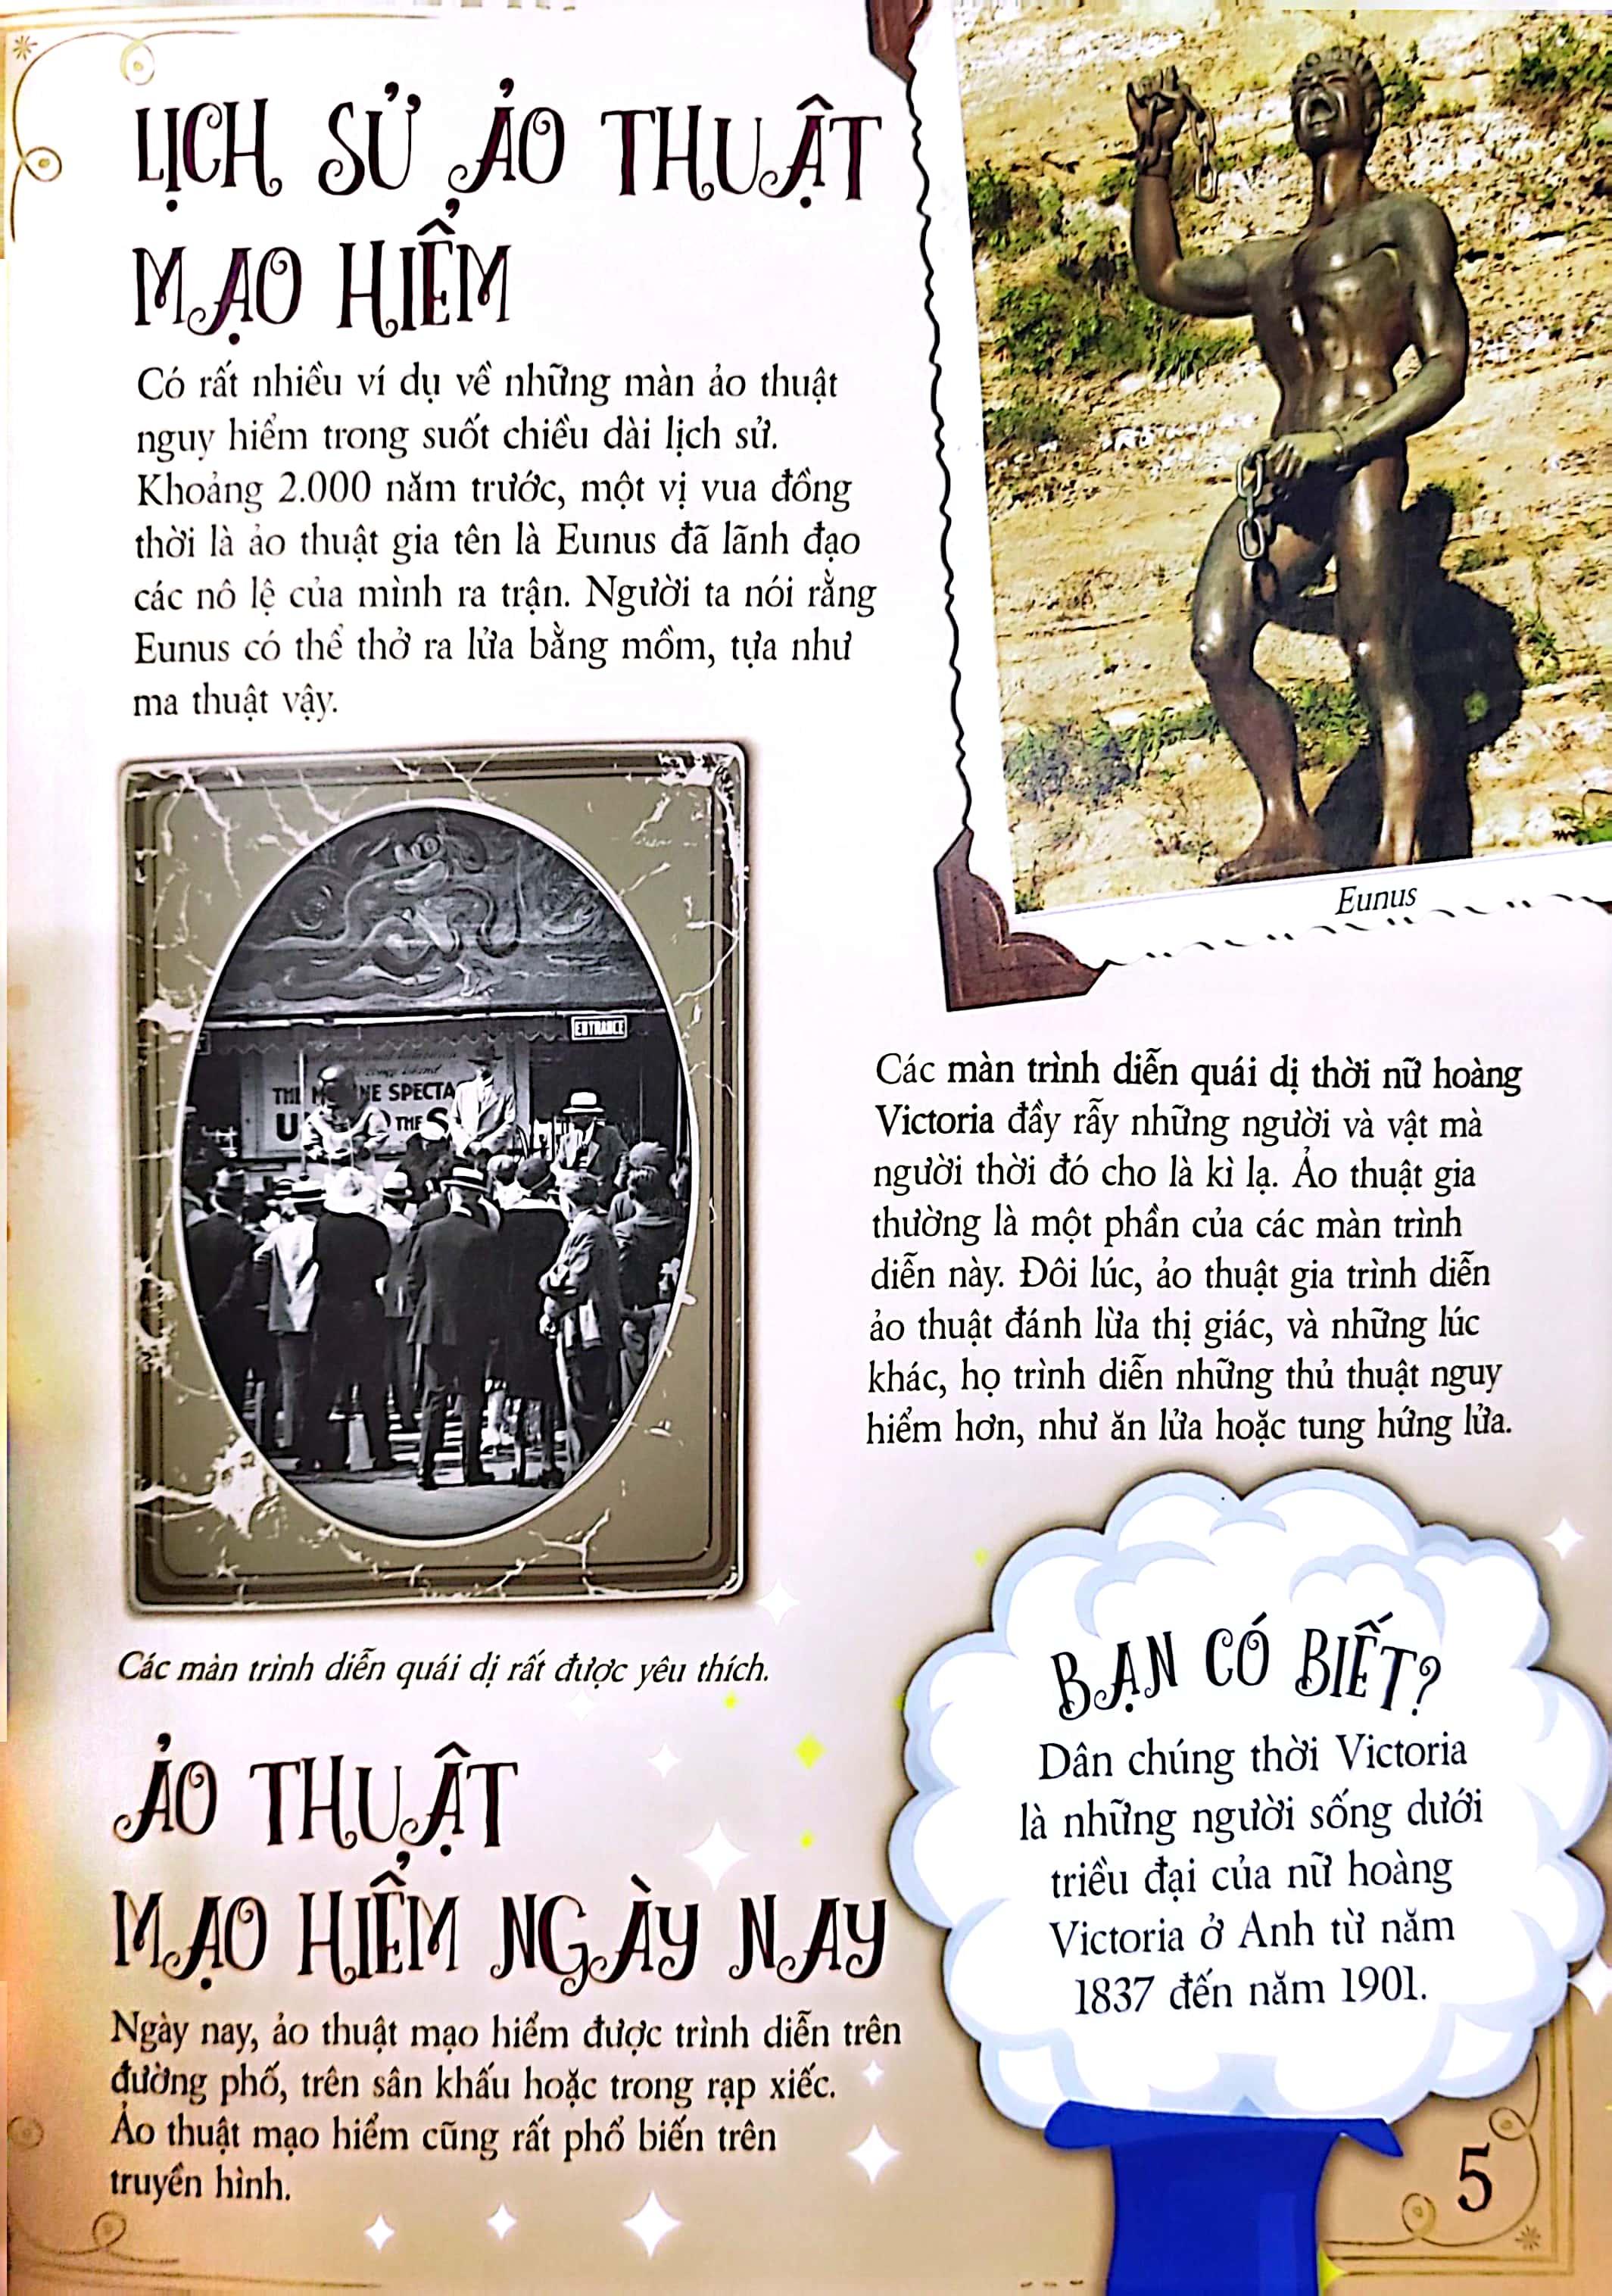 LỊCH SỬ ẢO THUẬT
MẠO HIỂM
Có rất nhiều ví dụ về những màn ảo thuật
nguy hiểm trong suốt chiều dài lịch sử.
Khoảng 2.000 năm trước, một vị vua đồng
thời là ảo thuật gia tên là Eunus đã lãnh đạo
các nô lệ của mình ra trận. Người ta nói rằng
Eunus có thể thở ra lửa bằng mồm, tựa như
ma thuật vậy.
Eunus
ENTRANCE
SPECTA
THE
Các màn trình diễn quái dị rất được yêu thích.
Các màn trình diễn quái dị thời nữ hoàng
Victoria đầy rẫy những người và vật mà
người thời đó cho là kì lạ. Ảo thuật gia
thường là một phần của các màn trình
diễn này. Đôi lúc, ảo thuật gia trình diễn
ảo thuật đánh lừa thị giác, và những lúc
khác, họ trình diễn những thủ thuật nguy
hiểm hơn, như ăn lửa hoặc tung hứng lửa.
BẠN CÓ BIẾT?
Dân chúng thời Victoria
là những người sống dưới
triều đại của nữ hoàng
Victoria ở Anh từ năm
1837 đến năm 1901.
ẢO THUẬT
MẠO HIỂM NGÀY NAY
Ngày nay, ảo thuật mạo hiểm được trình diễn trên
đường phố, trên sân khấu hoặc trong rạp xiếc.
Ảo thuật mạo hiểm cũng rất phổ biến trên
truyền hình.
5